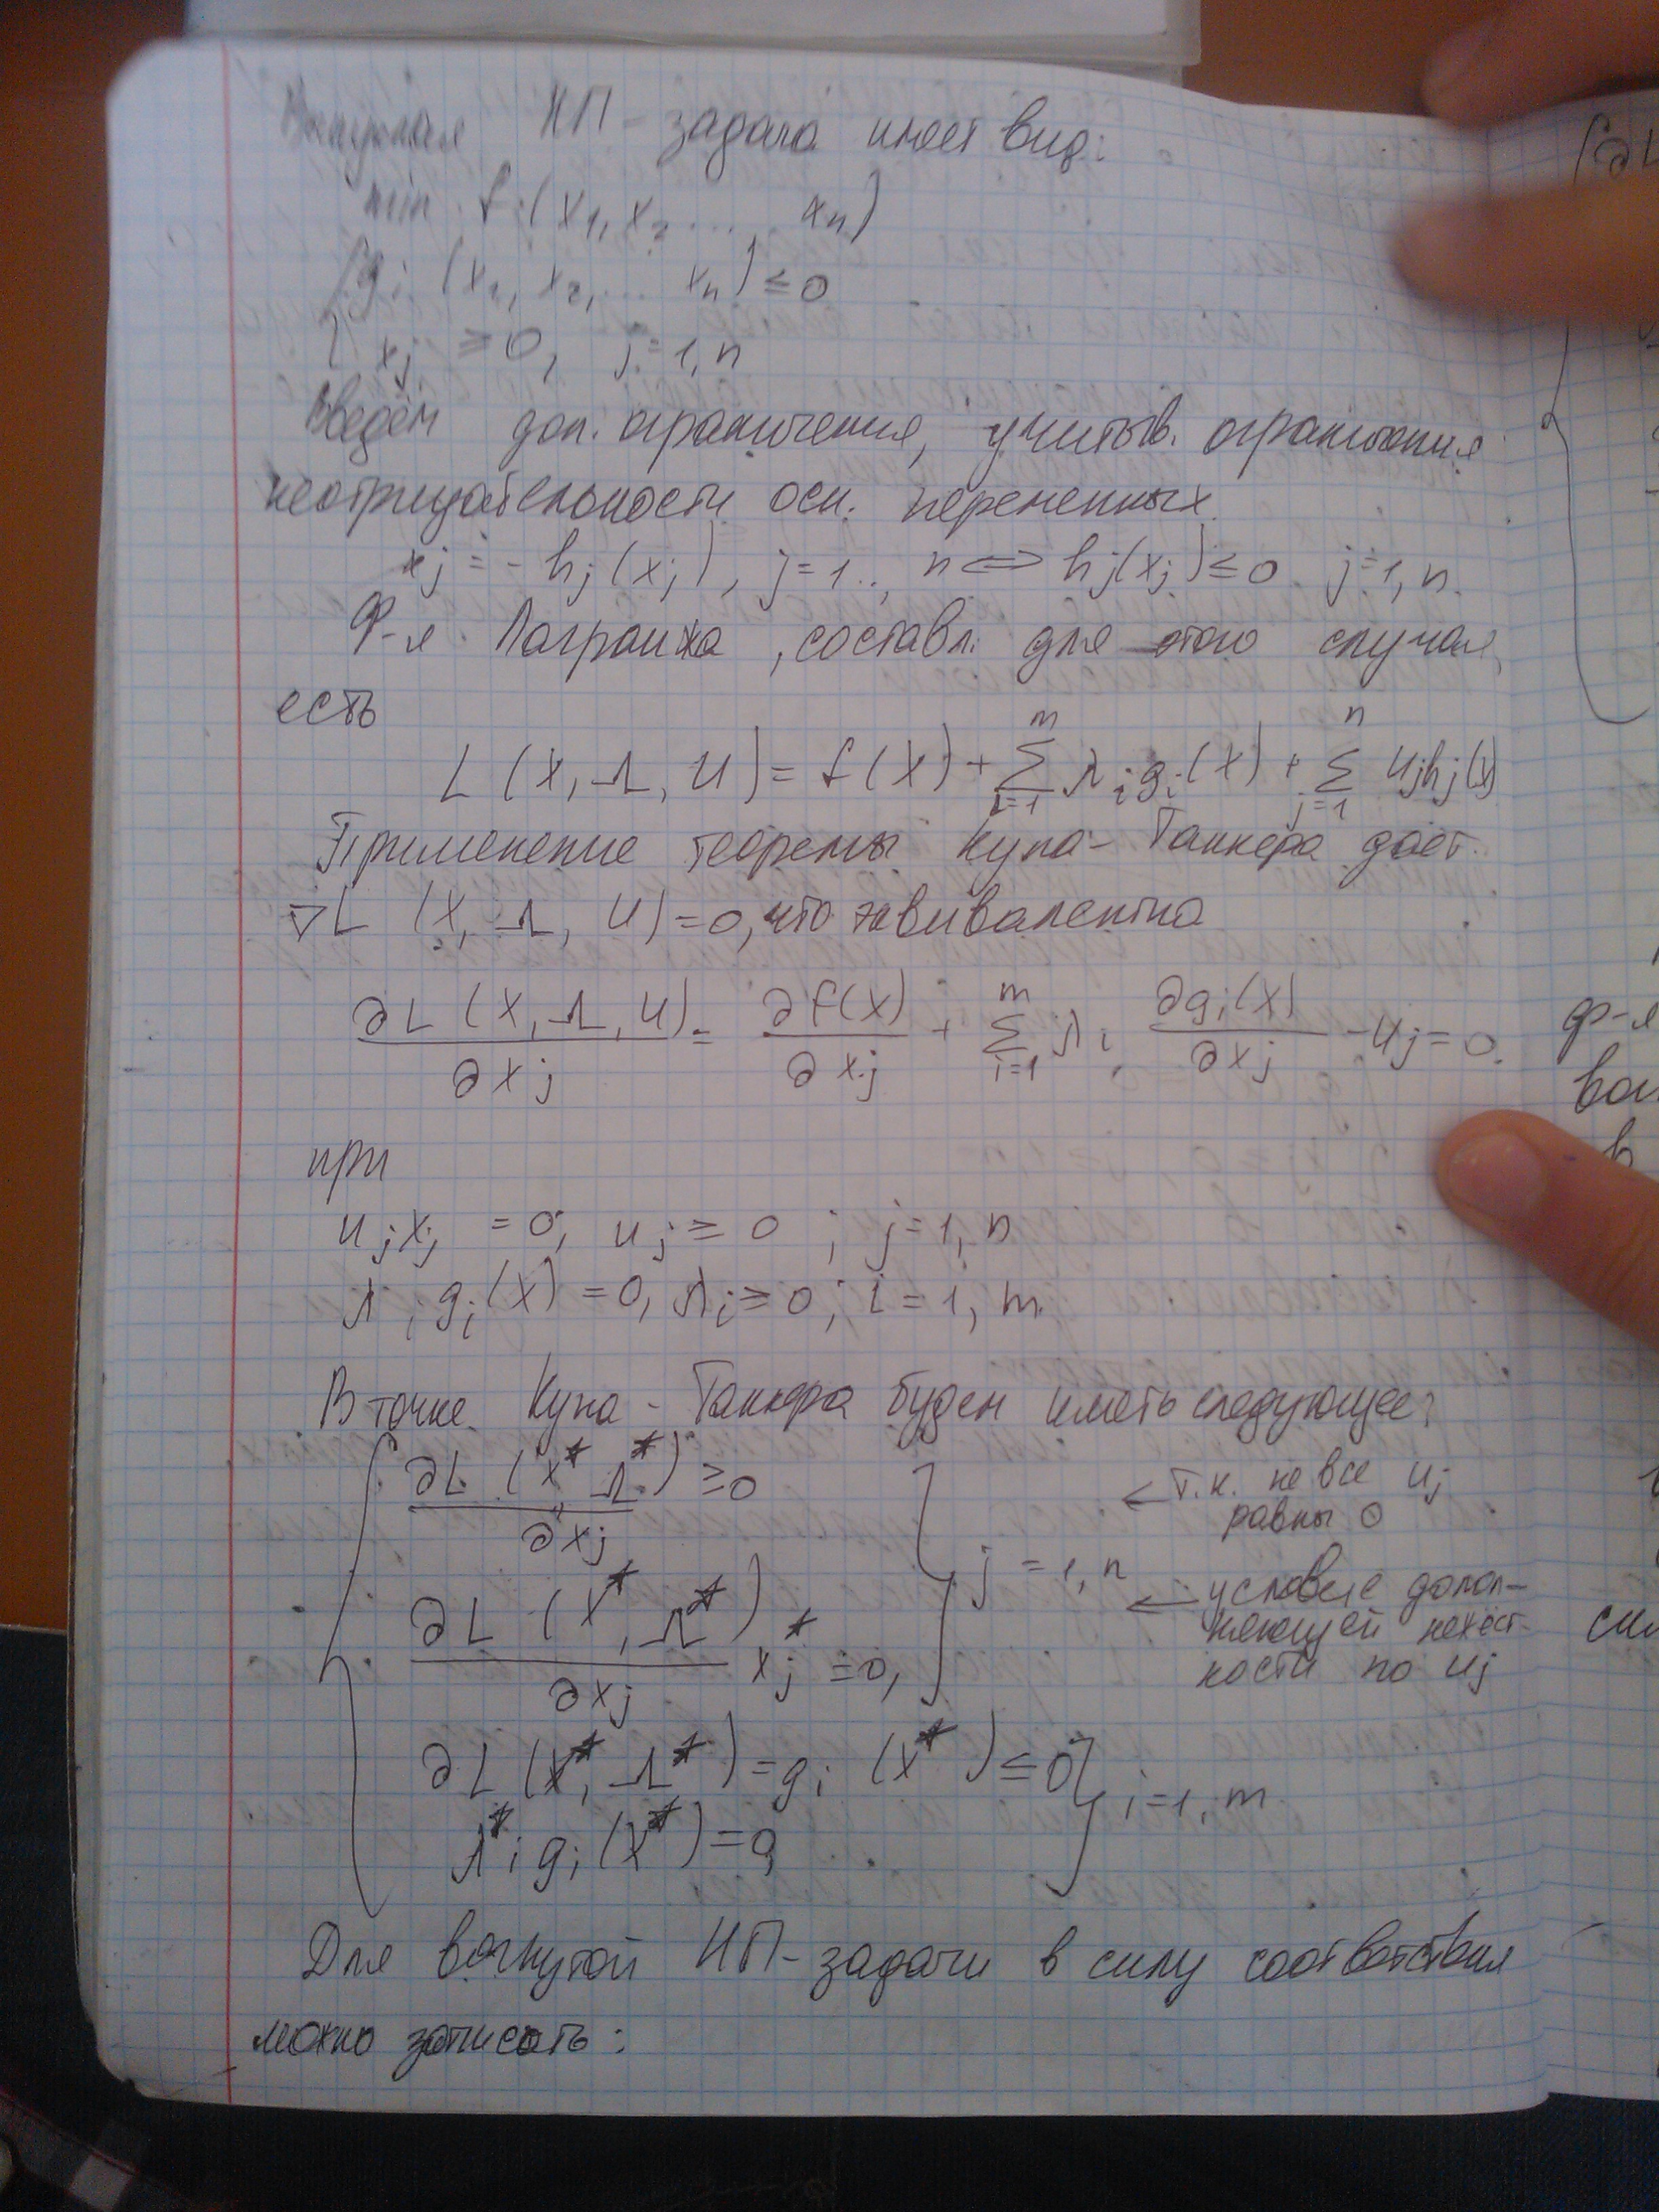 Выпуклая НП - задача имеет вид:
min f (x1, x2 ..., xn)
{ gi (x1, x2, ... xn) ≤ 0
xj ≥ 0, j = 1, n
Введём доп. ограничения, учитыв. ограничения
неотрицательности осн. переменных.
xj = - hj (xj), j = 1.., n ⇔ hj(xj) ≤ 0 j = 1, n.
Ф-я Лагранжа, составл. для этого случая,
есть
L (X, Λ, U) = f(X) + m Σ i=1 λi gi(X) + n Σ j=1 Uj hj(x)
Применение теоремы Куна - Таккера даёт.
∇L (X, Λ, U) = 0, что эквивалентно
∂L (X, Λ, U) / ∂xj = ∂f(X) / ∂xj + m Σ i=1 λi ∂gi(X) / ∂xj - Uj = 0.
при
uj xj = 0, uj ≥ 0 ; j = 1, n
λi gi(X) = 0, λi ≥ 0; i = 1, m
В точке Куна - Таккера будем иметь следующее:
{ ∂L (X*, Λ*) / ∂xj ≥ 0 ← т.к. не все Uj
равны 0
∂L (X*, Λ*) / ∂xj xj* = 0, } j = 1, n ← условие допол-
няющей нежест-
кости по Uj
∂L (X*, Λ*) = gi (X*) ≤ 0 } i = 1, m
λ*i gi (X*) = 0
Для вогнутой НП - задачи в силу соответствия
можно записать:
ф-я